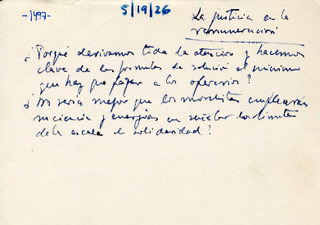 -1497-
5/19/26
La justicia en la
remuneración
¿Porqué derivamos toda la atención y hacemos
clave de las formulas de solución el mínimo
que hay que pagar a los operarios?
¿No sería mejor que los moralistas emplearan
su ciencia y energías en señalar los limites
de la escala de solidaridad?